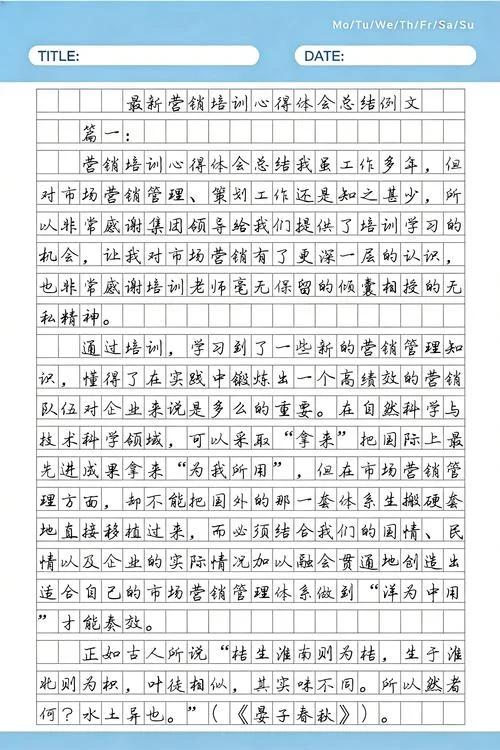 Mo/Tu/We/Th/Fr/Sa/Su
TITLE: DATE:
最新营销培训心得体会总结例文
篇一：
营销培训心得体会总结我虽工作多年，但
对市场营销管理、策划工作还是知之甚少，所
以非常感谢集团领导给我们提供了培训学习的
机会，让我对市场营销有了更深一层的认识，
也非常感谢培训老师毫无保留的倾囊相授的无
私精神。
通过培训，学习到了一些新的营销管理知
识，懂得了在实践中锻炼出一个高绩效的营销
队伍对企业来说是多么的重要。在自然科学与
技术科学领域，可以采取“拿来”把国际上最
先进成果拿来“为我所用”，但在市场营销管
理方面，却不能把国外的那一套体系生搬硬套
地直接移植过来，而必须结合我们的国情、民
情以及企业的实际情况加以融会贯通地创造出
适合自己的市场营销管理体系做到“洋为中用
”才能奏效。
正如古人所说“桔生淮南则为桔，生于淮
北则为枳，叶徒相似，其实味不同。所以然者
何？水土异也。”（《晏子春秋》）。